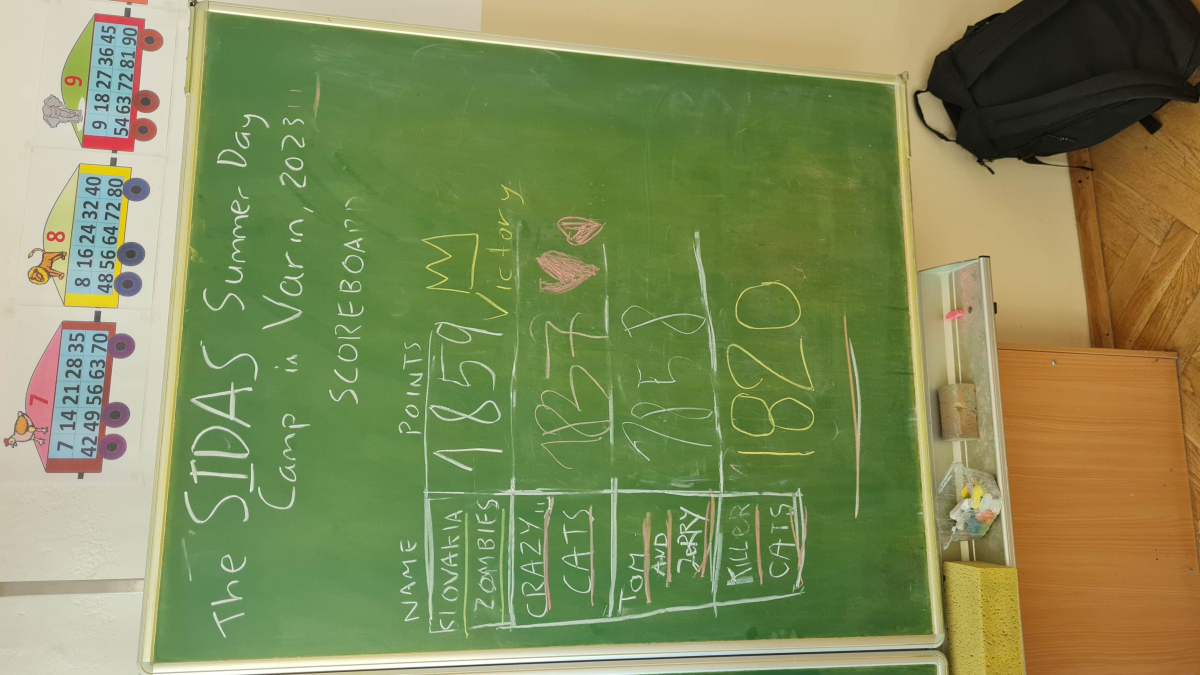 7
7 14 21 28 35
42 49 56 63 70
8
8 16 24 32 40
48 56 64 72 80
9
9 18 27 36 45
54 63 72 81 90
The SIDAS Summer Day
Camp in Varin, 2023!!
SCOREBOARD
NAME POINTS
KLOVAKIA
ZOMBIES 1859
Victory
CRAZY
CATS 1837
TOM
AND
JeRRY 1858
KILLeR
CATS 1820